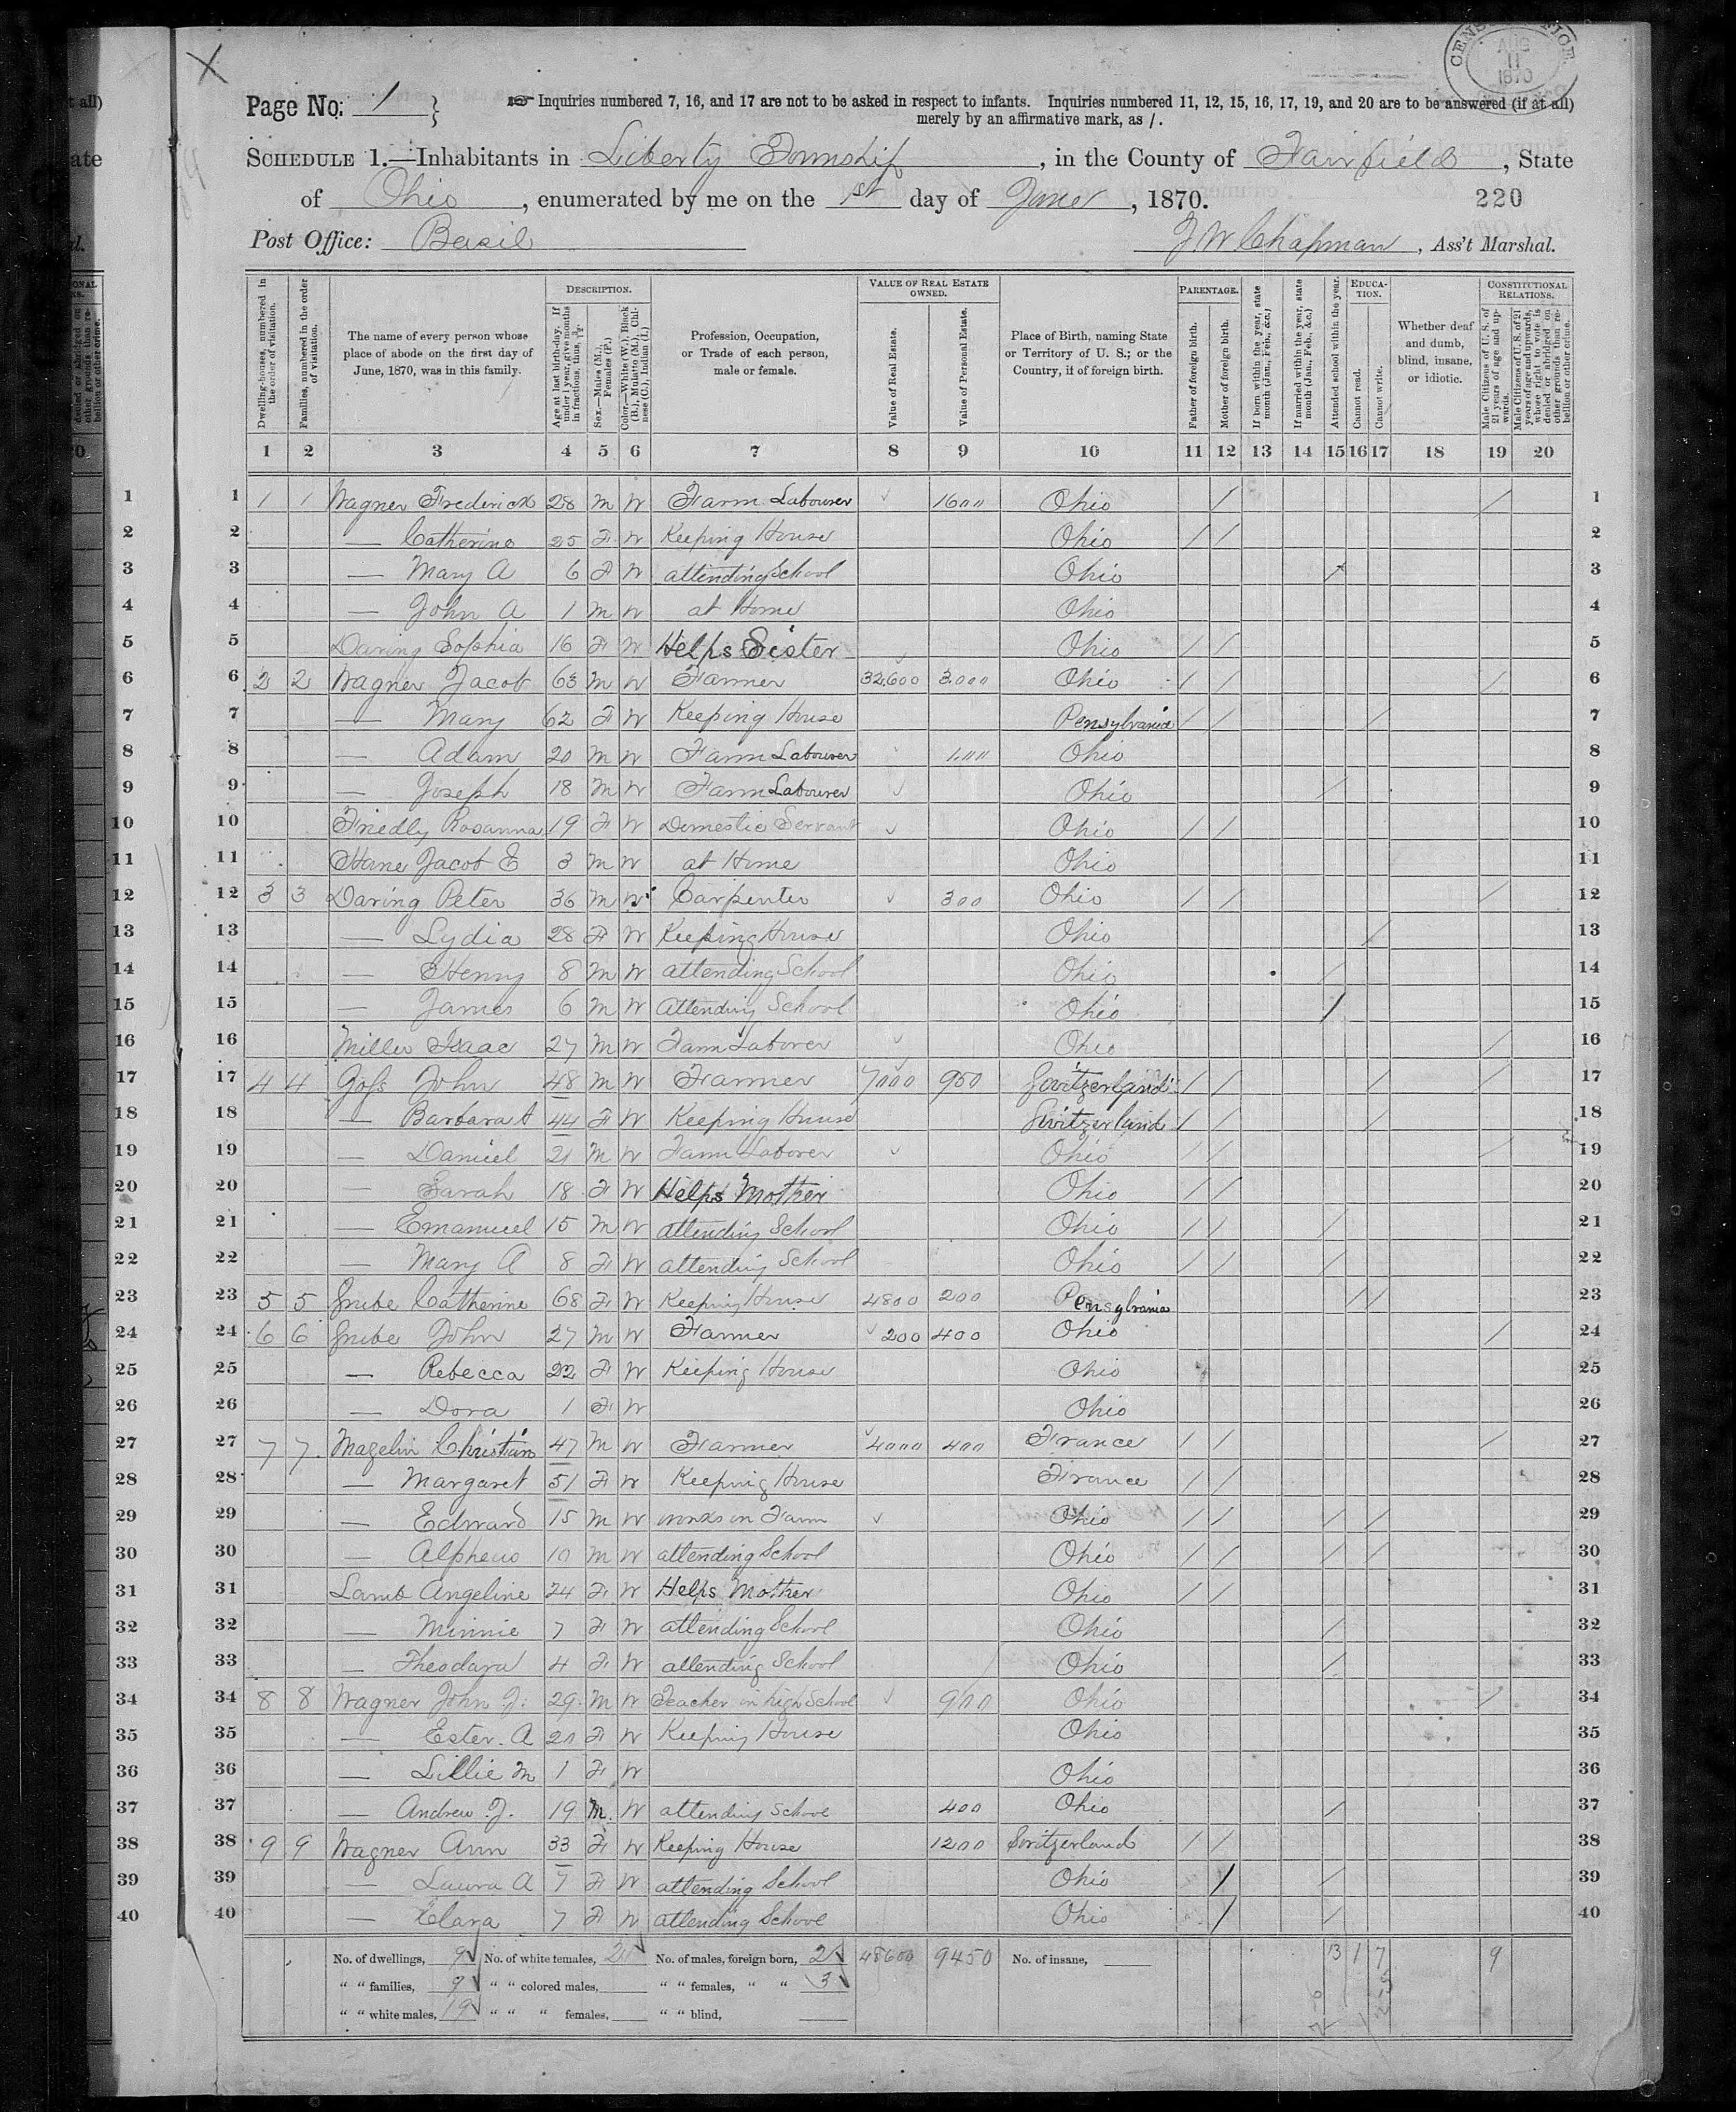 CENSUS OFFICE
AUG
11
1870
Page No. 1
Inquiries numbered 7, 16, and 17 are not to be asked in respect to infants. Inquiries numbered 11, 12, 15, 16, 17, 19, and 20 are to be answered (if at all)
merely by an affirmative mark, as /.
SCHEDULE 1.—Inhabitants in Liberty Township, in the County of Fairfield, State
of Ohio, enumerated by me on the 1st day of June, 1870. 220
Post Office: Basil J W Chapman, Ass't Marshal.
Dwelling-houses, numbered in the order of visitation.
Families, numbered in the order of visitation.
The name of every person whose place of abode on the first day of June, 1870, was in this family.
DESCRIPTION.
Age at last birth-day. If under 1 year, give months in fractions, thus, 3/12.
Sex.—Males (M.), Females (F.)
Color.—White (W.), Black (B.), Mulatto (M.), Chinese (C.), Indian (I.)
Profession, Occupation, or Trade of each person, male or female.
VALUE OF REAL ESTATE OWNED.
Value of Real Estate.
Value of Personal Estate.
Place of Birth, naming State or Territory of U. S.; or the Country, if of foreign birth.
PARENTAGE.
Father of foreign birth.
Mother of foreign birth.
If born within the year, state month (Jan., Feb., &c.)
If married within the year, state month (Jan., Feb., &c.)
Attended school within the year.
EDUCATION.
Cannot read.
Cannot write.
Whether deaf and dumb, blind, insane, or idiotic.
CONSTITUTIONAL RELATIONS.
Male Citizens of U. S. of 21 years of age and upwards.
Male Citizens of U. S. of 21 years of age and upwards, whose right to vote is denied or abridged on other grounds than rebellion or other crime.
1 2 3 4 5 6 7 8 9 10 11 12 13 14 15 16 17 18 19 20
1 1 1 Wagner Frederick 28 M W Farm Labourer 1600 Ohio / / 1
2 — Catherine 25 F W Keeping House Ohio / / 2
3 — Mary A 6 F W attending School Ohio / 3
4 — John A 1 M W at Home Ohio 4
5 Daring Sophia 16 F W Helps Sister Ohio / / 5
6 2 2 Wagner Jacob 63 M W Farmer 32,600 3,000 Ohio / / / 6
7 — Mary 62 F W Keeping House Pensylvania / / / 7
8 — Adam 20 M W Farm Labourer 100 Ohio 8
9 — Joseph 18 M W Farm Labourer Ohio / 9
10 Friedly Rosanna 19 F W Domestic Servant Ohio / / 10
11 Hane Jacob E 3 M W at Home Ohio 11
12 3 3 Daring Peter 36 M W Carpenter 300 Ohio / / / 12
13 — Lydia 28 F W Keeping House Ohio / 13
14 — Henry 8 M W attending School Ohio / 14
15 — James 6 M W Attending School Ohio / 15
16 Miller Isaac 27 M W Farm Laborer Ohio / 16
17 4 4 Goss John 48 M W Farmer 7000 950 Switzerland / / / / 17
18 — Barbara A 44 F W Keeping House Switzerland / / / 18
19 — Daniel 21 M W Farm Laborer Ohio / / / 19
20 — Sarah 18 F W Helps Mother Ohio / / 20
21 — Emanuel 15 M W attending School Ohio / / / 21
22 — Mary A 8 F W attending School Ohio / / / 22
23 5 5 Grube Catherine 68 F W Keeping House 4800 200 Pensylvania / / 23
24 6 6 Grube John 27 M W Farmer 200 400 Ohio / 24
25 — Rebecca 22 F W Keeping House Ohio 25
26 — Dora 1 F W Ohio 26
27 7 7 Mazelin Christian 47 M W Farmer 4000 400 France / / / 27
28 — Margaret 51 F W Keeping House France / / 28
29 — Edward 15 M W works on Farm Ohio / / / / 29
30 — Alpheus 10 M W attending School Ohio / / / / 30
31 Lamb Angeline 24 F W Helps Mother Ohio / / 31
32 — Minnie 7 F W attending School Ohio / 32
33 — Theodara 4 F W attending School Ohio / 33
34 8 8 Wagner John J. 29 M W Teacher in high School 900 Ohio / 34
35 — Ester A 20 F W Keeping House Ohio 35
36 — Lillie M 1 F W Ohio 36
37 — Andrew J. 19 M W attending School 400 Ohio / 37
38 9 9 Wagner Ann 33 F W Keeping House 1200 Switzerland / / 38
39 — Laura A 7 F W attending School Ohio / / 39
40 — Clara 7 F W attending School Ohio / / 40
No. of dwellings, 9 No. of white females, 21 No. of males, foreign born, 2 48600 9450 No. of insane, 13 1 7 9
" " families, 9 " " colored males, " " females, " " 3
" " white males, 19 " " " females, " " blind,